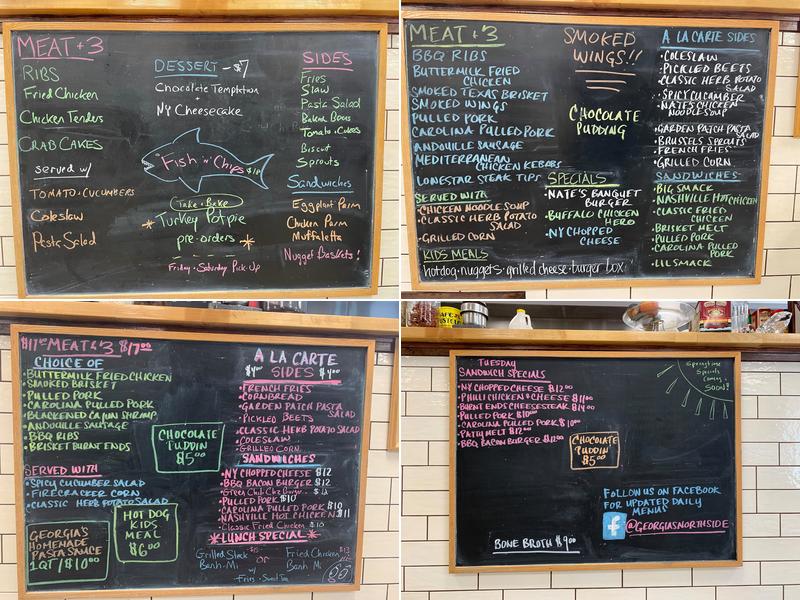 MEAT + 3
RIBS
Fried Chicken
Chicken Tenders
CRAB CAKES
served w/
TOMATO + CUCUMBERS
Coleslaw
Pasta Salad
DESSERT - $7
Chocolate Temptation
+
NY Cheesecake
"Fish 'n' Chips $18
Take + Bake
Turkey Potpie
pre-orders
Friday + Saturday Pick-Up
SIDES
Fries
Slaw
Pasta Salad
Baked Beans
Tomato + Cukes
Biscuit
Sprouts
Sandwiches
Eggplant Parm
Chicken Parm
Muffaletta
Nugget Baskets!
MEAT + 3
BBQ RIBS
BUTTERMILK FRIED
CHICKEN
SMOKED TEXAS BRISKET
SMOKED WINGS
PULLED PORK
CAROLINA PULLED PORK
ANDOUILLE SAUSAGE
MEDITERRANEAN
CHICKEN KEBABS
LONESTAR STEAK TIPS
SERVED WITH
• CHICKEN NOODLE SOUP
• CLASSIC HERB POTATO
SALAD
• GRILLED CORN
KIDS MEALS
hotdog • nuggets • grilled cheese • burger box
SMOKED
WINGS!!
CHOCOLATE
PUDDING
SPECIALS
• NATE'S BANQUET
BURGER
• BUFFALO CHICKEN
HERO
• NY CHOPPED
CHEESE
A LA CARTE SIDES
• COLESLAW
• PICKLED BEETS
• CLASSIC HERB POTATO
SALAD
• SPICY CUCUMBER
• NATE'S CHICKEN
NOODLE SOUP
• GARDEN PATCH PASTA
SALAD
• BRUSSELS SPROUTS
• FRENCH FRIES
• GRILLED CORN
SANDWICHES
• BIG SMACK
• NASHVILLE HOT CHICKEN
• CLASSIC FRIED
CHICKEN
• BRISKET MELT
• PULLED PORK
• CAROLINA PULLED
PORK
• LIL SMACK
$17.00 MEAT + 3 $17.00
CHOICE OF
• BUTTERMILK FRIED CHICKEN
• SMOKED BRISKET
• PULLED PORK
• CAROLINA PULLED PORK
• BLACKENED CAJUN SHRIMP
• ANDOUILLE SAUSAGE
• BBQ RIBS
• BRISKET BURNT ENDS
SERVED WITH
• SPICY CUCUMBER SALAD
• FIRECRACKER CORN
• CLASSIC HERB POTATO SALAD
GEORGIA'S
HOMEMADE
PASTA SAUCE
1 QT / $10.00
HOT DOG
KIDS
MEAL
$6.00
CHOCOLATE
PUDDIN'
$5.00
A LA CARTE
$4.00 SIDES $4.00
• FRENCH FRIES
• CORNBREAD
• GARDEN PATCH PASTA
SALAD
• PICKLED BEETS
• CLASSIC HERB POTATO SALAD
• COLESLAW
• GRILLED CORN
SANDWICHES
• NY CHOPPED CHEESE $12
• BBQ BACON BURGER $12
• Green Chili Chz Burger $12
• PULLED PORK $10
• CAROLINA PULLED PORK $10
• NASHVILLE HOT CHICKEN $11
• Classic Fried Chicken $10
*LUNCH SPECIAL*
Grilled Steak
Banh-Mi
or
Fried Chicken
Banh Mi
w/
Fries + Sweet Tea
TUESDAY
SANDWICH SPECIALS
• NY CHOPPED CHEESE $12.00
• PHILLI CHICKEN & CHEESE $11.00
• BURNT ENDS CHEESESTEAK $14.00
• PULLED PORK $10.00
• CAROLINA PULLED PORK $10.00
• PATTY MELT $12.00
• BBQ BACON BURGER $12.00
CHOCOLATE
PUDDIN'
$5.00
Springtime
Specials
Coming
Soon!!
FOLLOW US ON FACEBOOK
FOR UPDATED DAILY
MENUS
f @GEORGIASNORTHSIDE
BONE BROTH $9.00